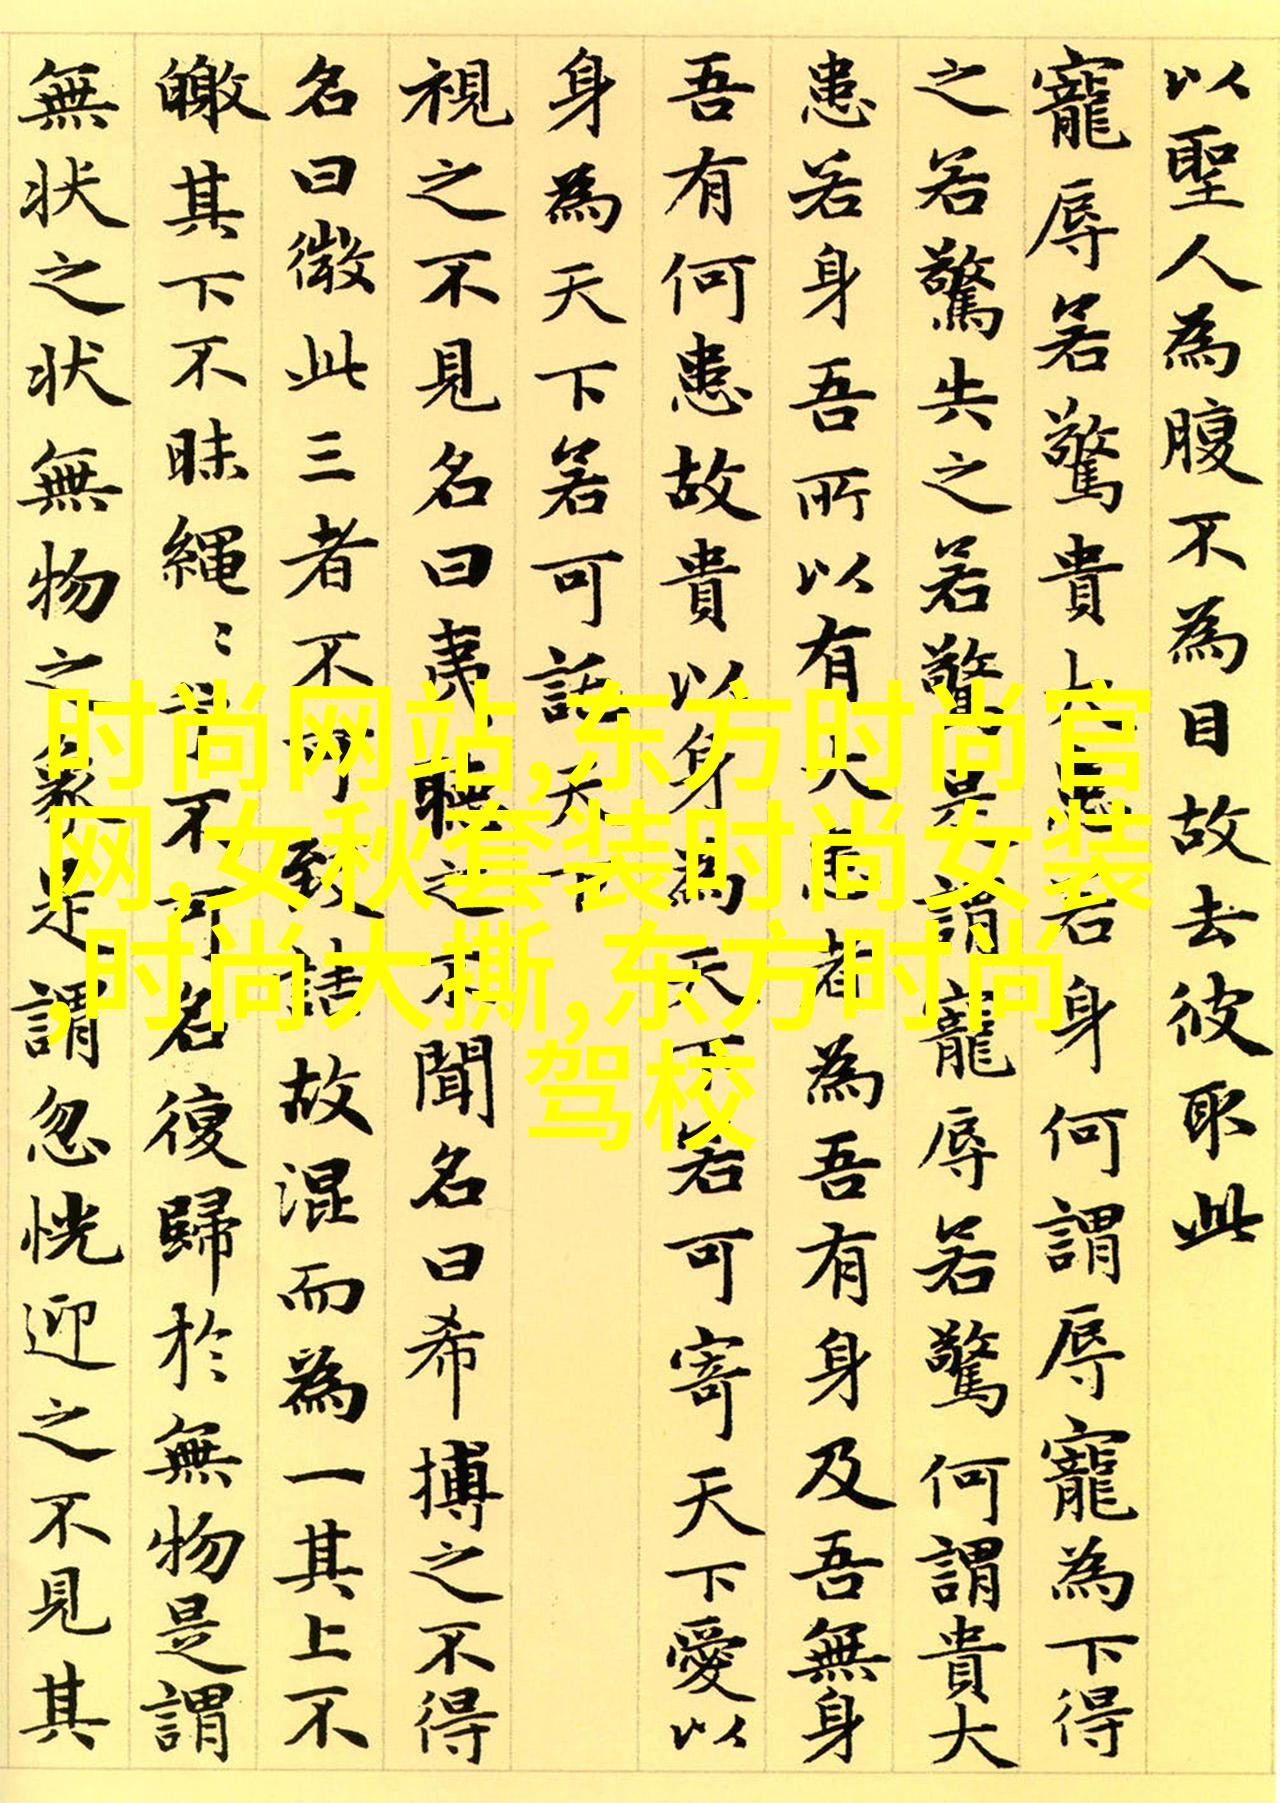 以聖人為腹不為目故去彼取此
寵辱若驚貴大患若身何謂辱寵為下得
之若驚失之若驚是謂寵辱若驚何謂貴大
患若身吾所以有大患者為吾有身及吾無身
吾有何患故貴以身為天下若可寄天下愛以
身為天下若可託天下
視之不見名曰夷聽之不聞名曰希搏之不得
名曰微此三者不可致詰故混而為一其上不
皦其下不昧繩〻兮不可名復歸於無物是謂
無狀之狀無物之象是謂忽恍迎之不見其
时尚网站,东方时尚官
网,女秋套装时尚女装
,时尚大撕,东方时尚
驾校